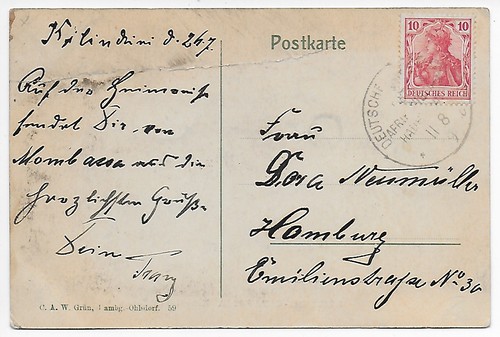 Kilindini d. 24.7.
Postkarte
10 10
DEUTSCHES REICH
DEUTSCHE
AFRIKA
11 8
Auf der Heimreise
sendet Dir von
Mombassa aus die
herzlichsten Grüße
Dein
Franz
Frau
Dora Neumüller
Hamburg
Emilienstraße No 30
C. A. W. Grün, Hambg.-Ohlsdorf. 59